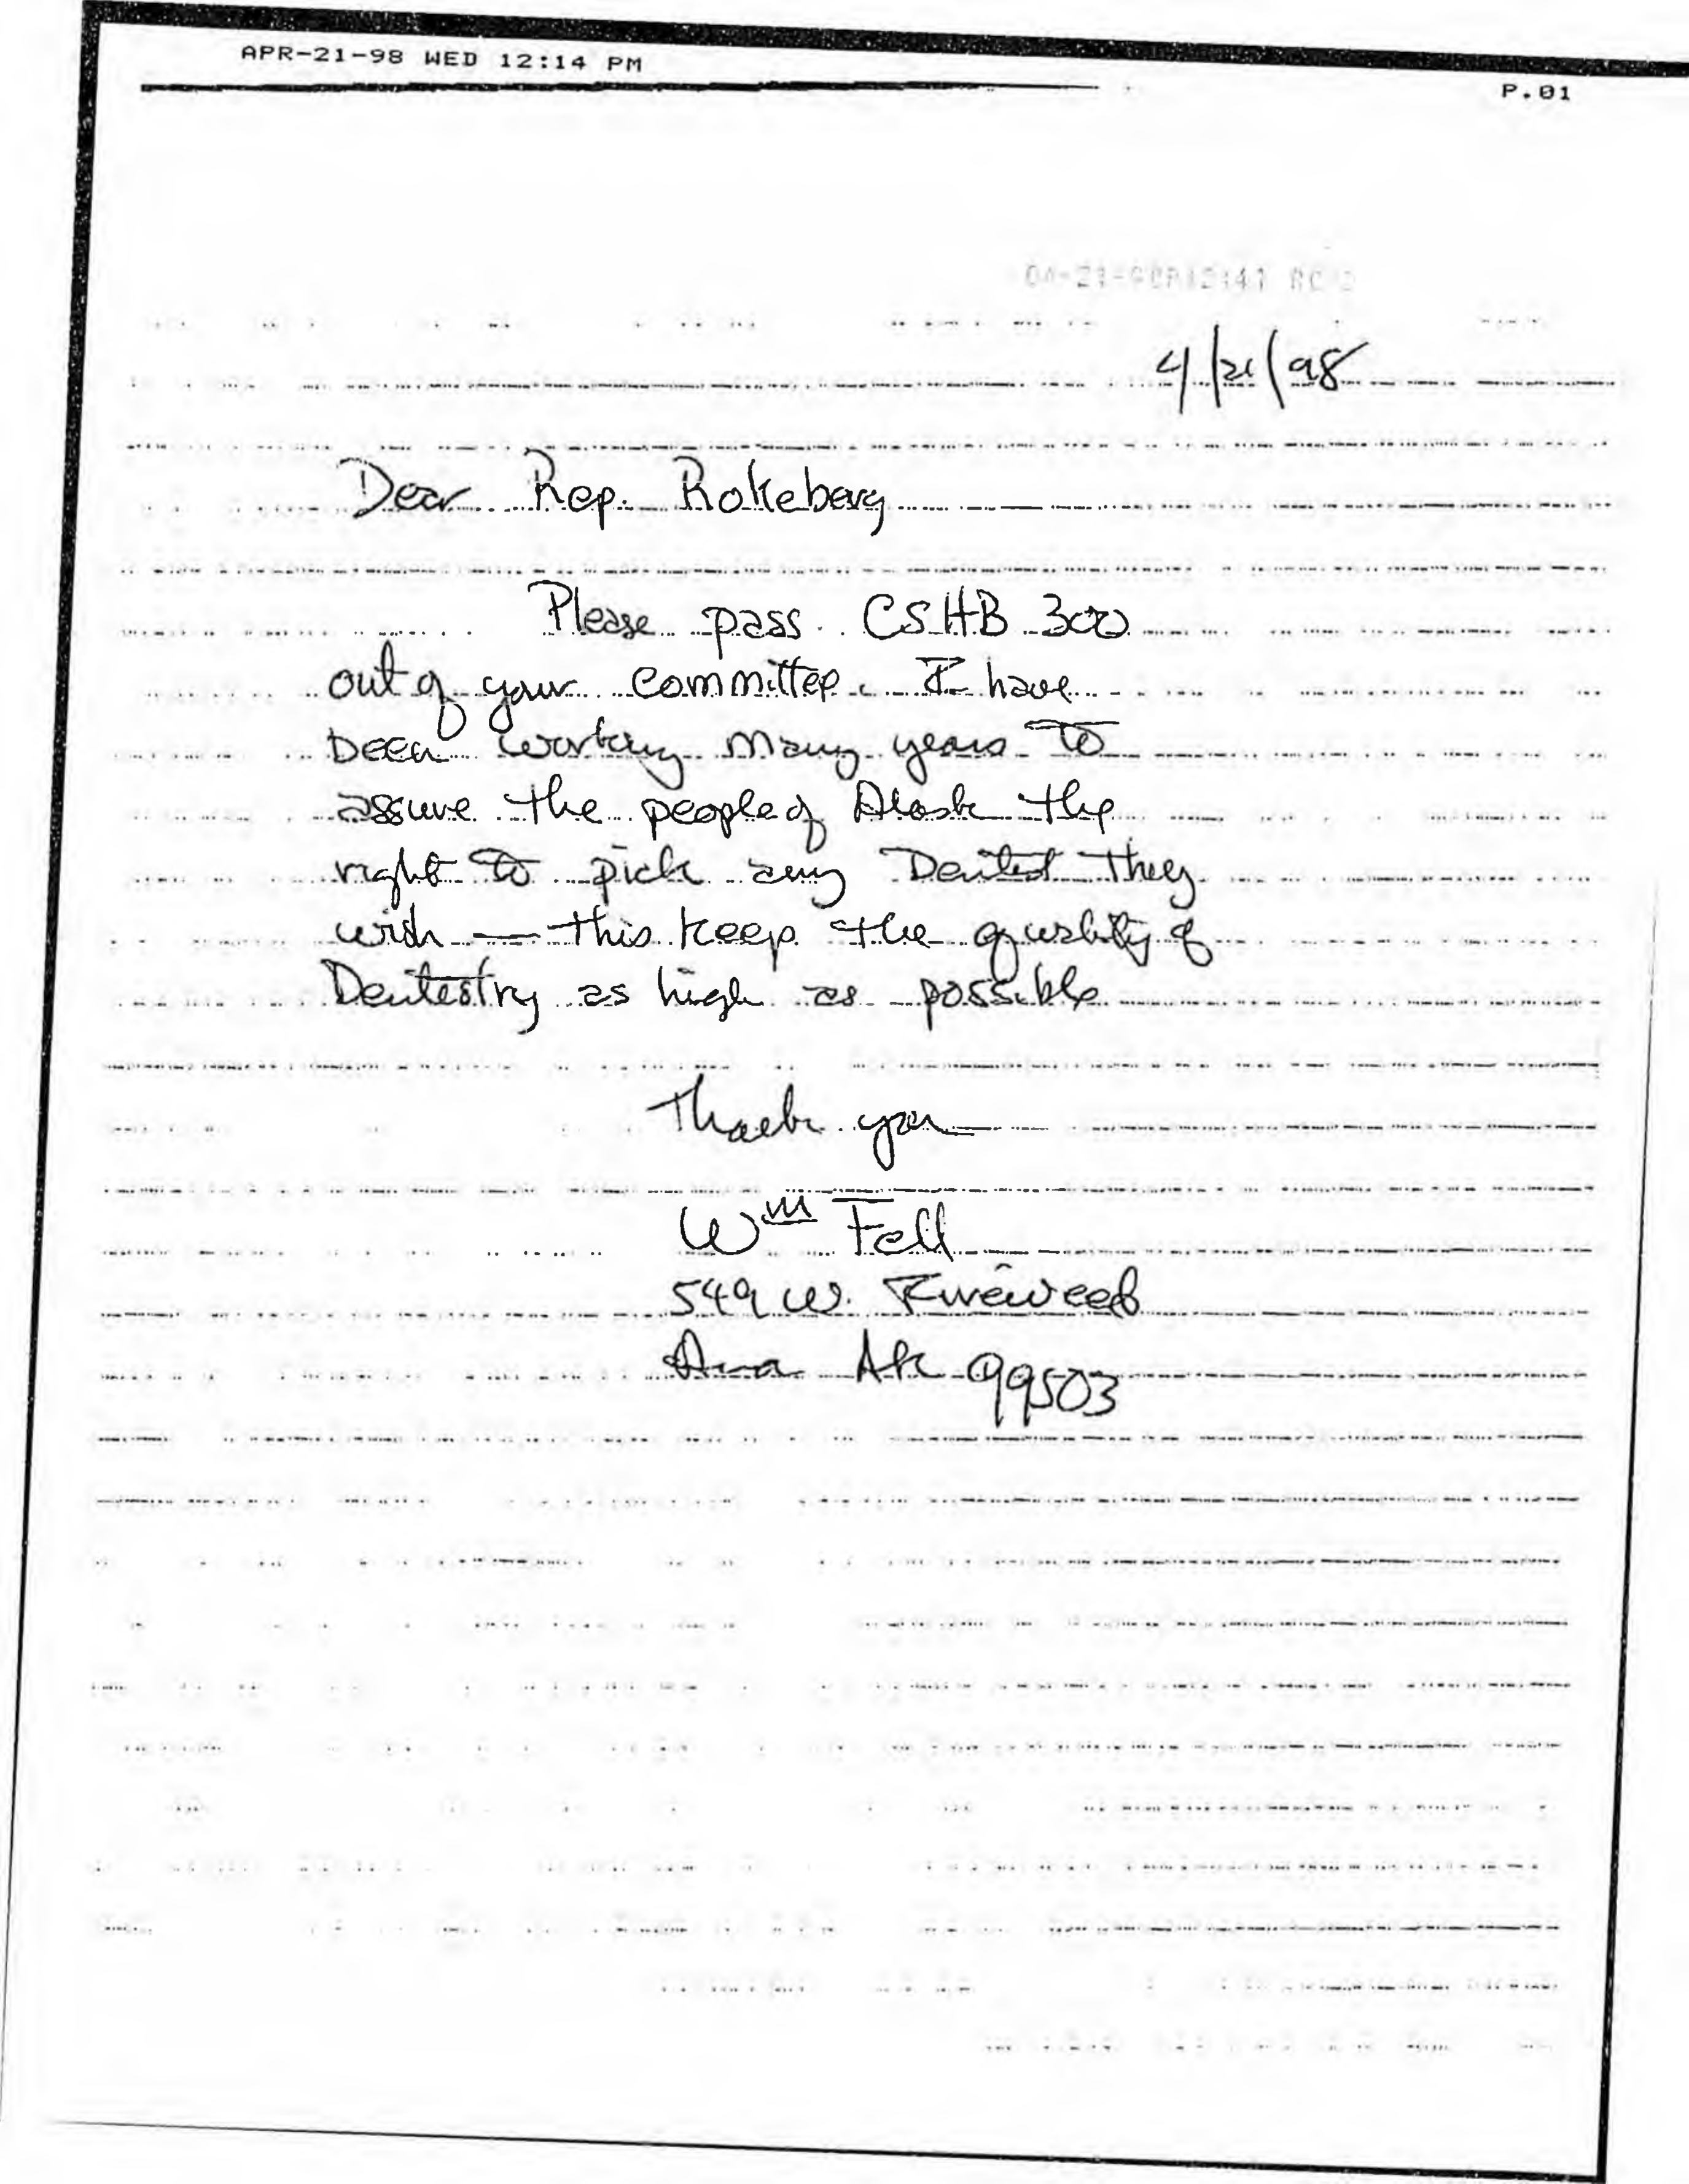 APR-21-98 WED 12:14 PM
P.01
4/21/98
Dear Rep. Rokeberg
Please pass CSHB 300
out of your committee. I have
been working many years to
assure the people of Alask the
right to pick any Dentist they
wish — this keep the quality of
Dentestry as high as possible
Thank you
Wm Fell
549 W. Fireweed
Anc AK 99503